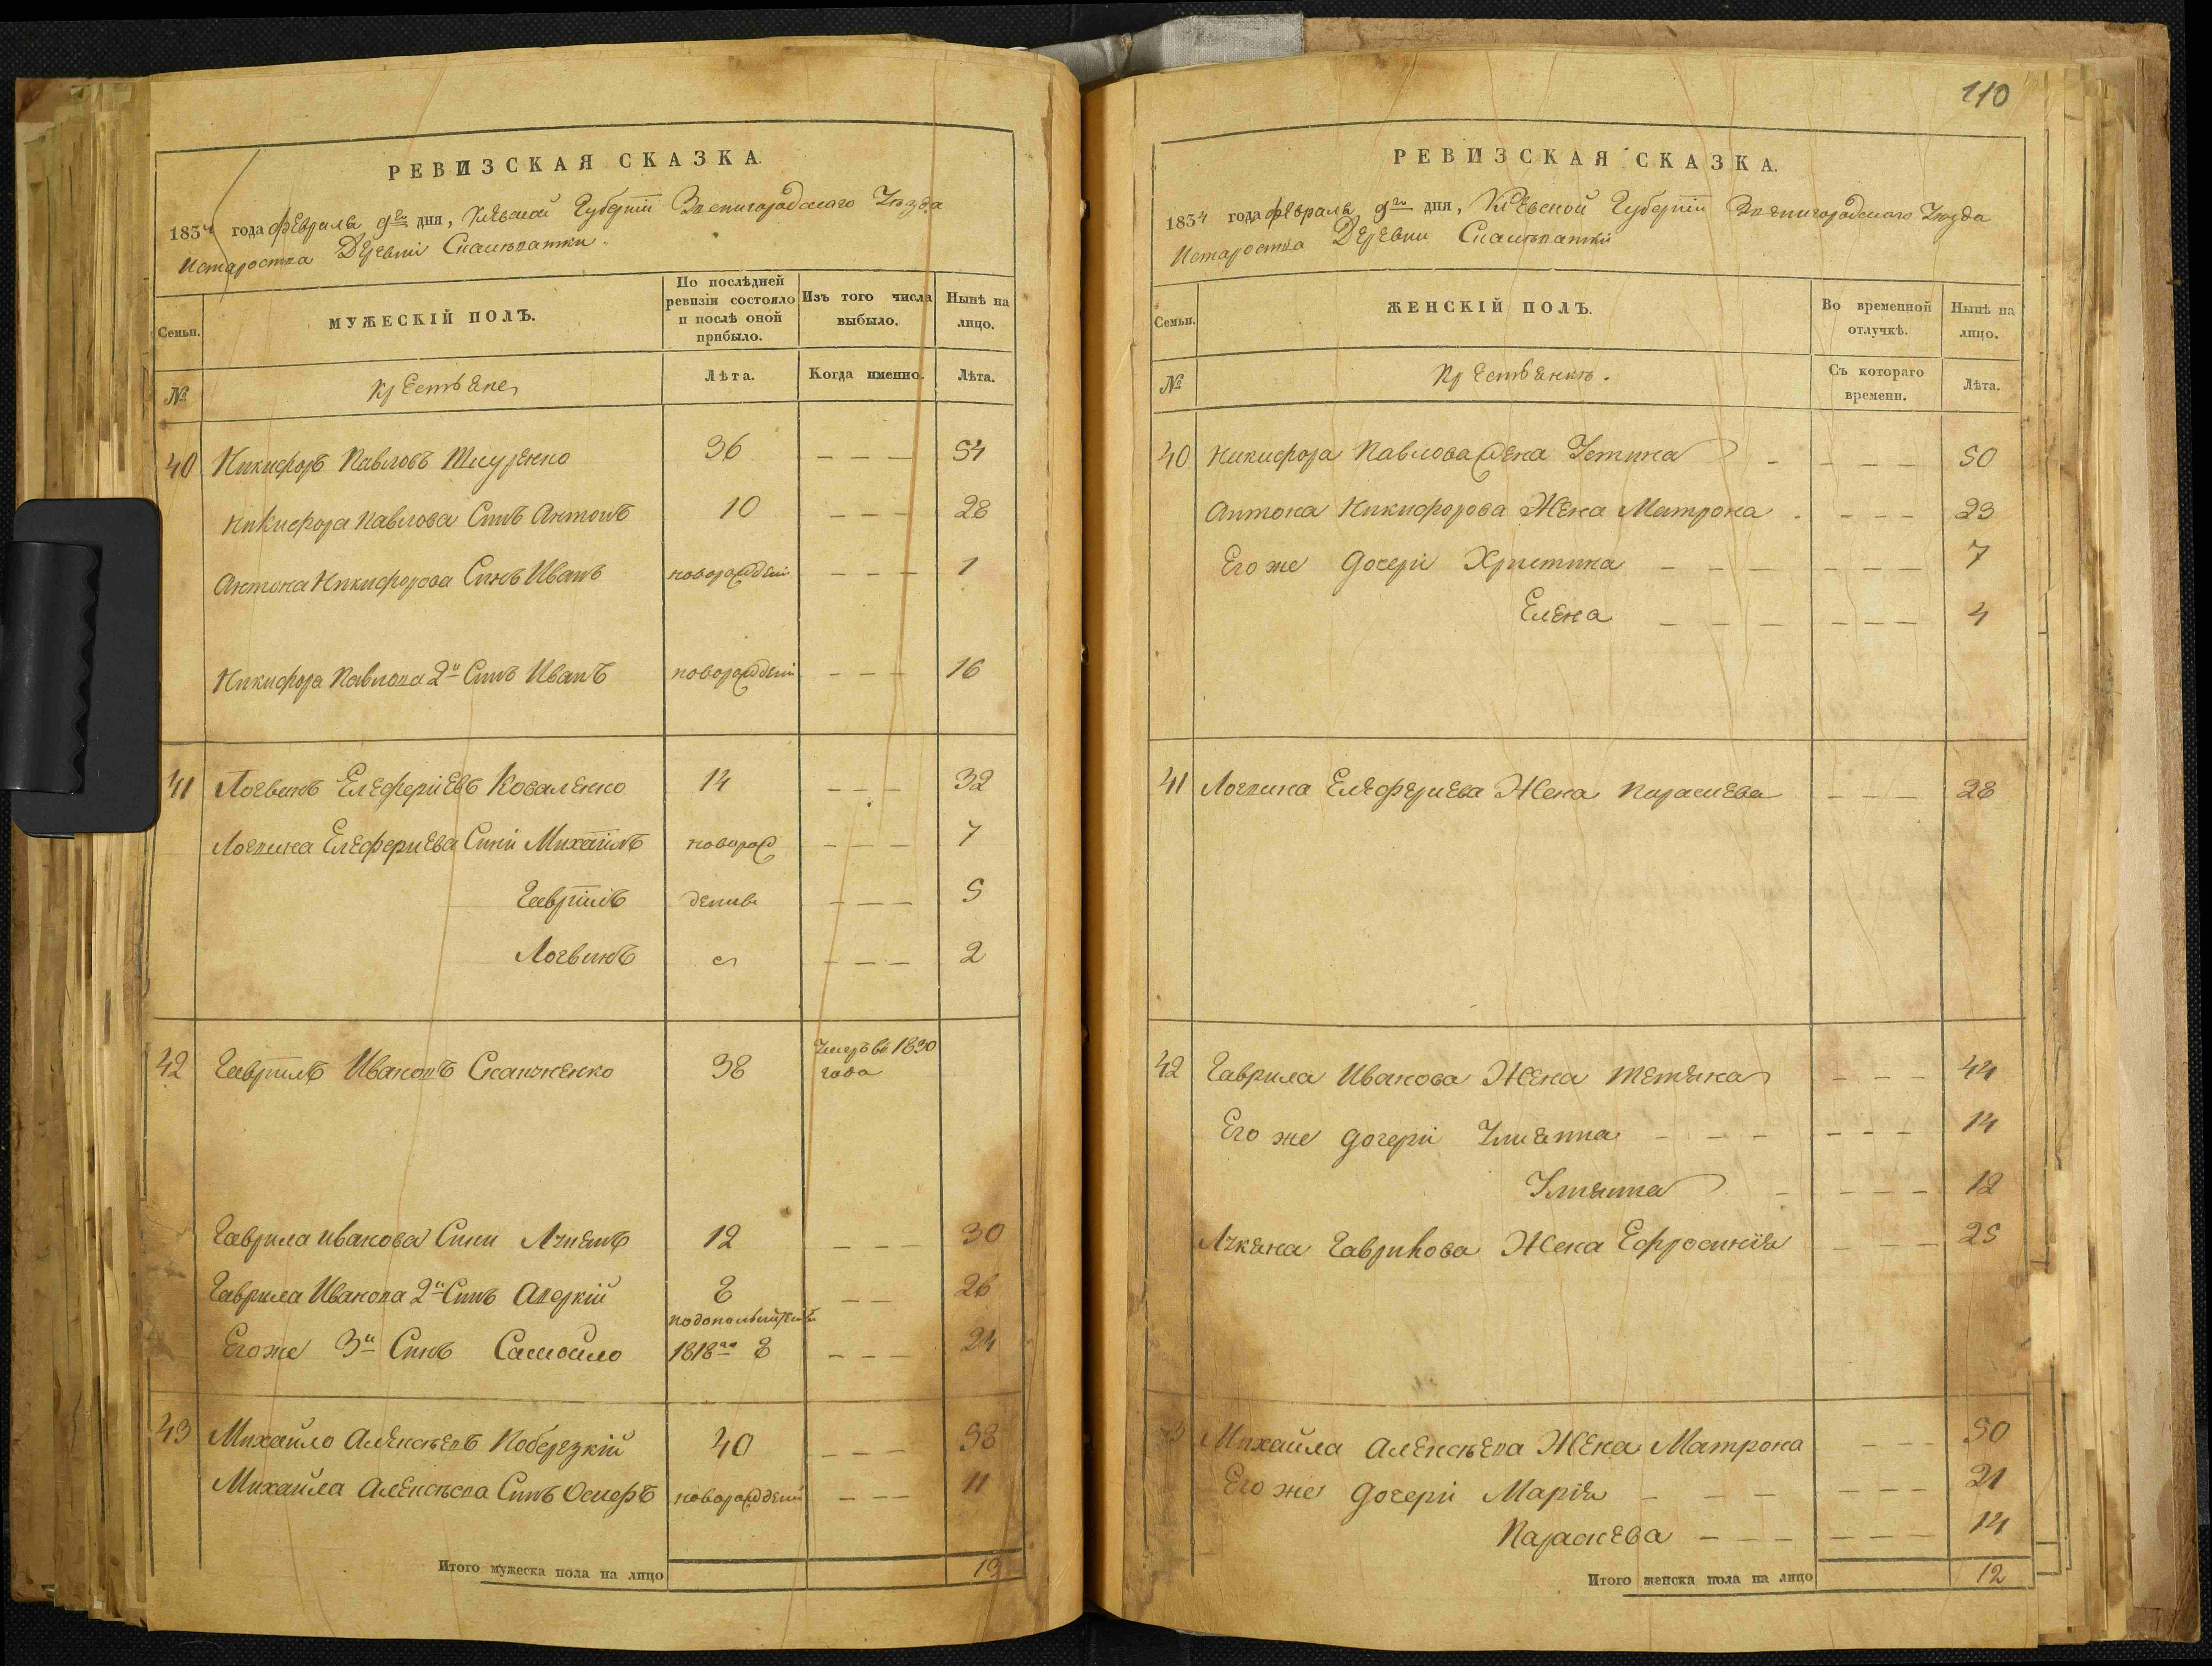 РЕВИЗСКАЯ СКАЗКА.
1834 года февраля 9го дня, Киевской Губернии Звенигородского Уезда
Староства Деревни
Семьи.
МУЖЕСКІЙ ПОЛЪ.
По послѣдней ревизіи состояло и послѣ оной прибыло.
Изъ того числа выбыло.
Нынѣ на лицо.
№
Крестьяне
Лѣта.
Когда именно.
Лѣта.
40 Никифоръ Павловъ 36 — — — 54
Никифора Павлова Синъ Антонъ 10 — — — 28
Антона Никифорова Синъ Иванъ новорожден — — — 1
Никифора Павлова 2й Синъ Иванъ новорожден — — — 16
41 Логвинъ Елефериевъ Коваленко 14 — — — 32
Логвина Елефериева Сини Михаилъ новорож — — — 7
Гавриилъ дении — — — 5
Логвинъ — — — 2
42 Гавриилъ Ивановъ 38 Умеръ въ 1830 года
Гаврила Иванова Сини Лукянъ 12 — — — 30
Гаврила Иванова 2й Синъ 8 — — 26
Его же 3й Синъ Самойло 1818го 8 — — — 24
43 Михайло Алексѣевъ Коберезкій 40 — — — 58
Михайла Алексѣева Синъ Осиефъ новорожденй — — — 11
Итого мужеска пола на лицо 13
110
РЕВИЗСКАЯ СКАЗКА.
1834 года февраля 9го дня, Киевской Губернии Звенигородского Уезда
Староства Деревни
Семьи.
ЖЕНСКІЙ ПОЛЪ.
Во временной отлучкѣ.
Нынѣ на лицо.
№
Крестьянкѣ.
Съ котораго времени.
Лѣта.
40 Никифора Павлова жена Устина — — — — 50
Антона Никифорова Жена Матрона — — — 23
Его же дочери Христина — — — — — — 7
Елена — — — — — — 4
41 Логвина Елефериева Жена Параскева — — — 28
42 Гаврила Иванова Жена Тетяна — — — 44
Его же дочери — — — — — — 14
— — — — 12
Лукяна Гаврилова Жена Ефросинія — — — 25
43 Михайла Алексѣева Жена Матрона — — — 50
Его же дочери Марія — — — — — — 21
Параскева — — — — — — 14
Итого женска пола на лицо 12